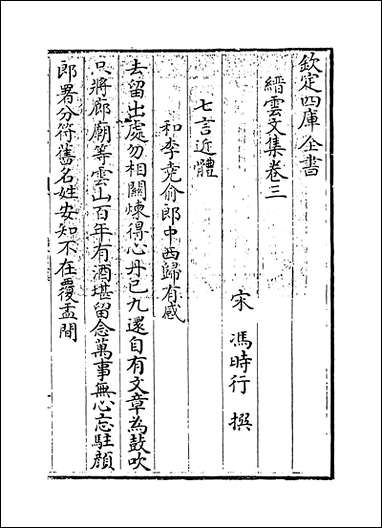 欽定四庫全書
縉雲文集卷三
宋 馮時行 撰
七言近體
和李堯俞郎中西歸有感
去留出處勿相關煉得心丹已九還自有文章為鼓吹
只將廊廟等雲山百年有酒堪留念萬事無心忘駐顏
郎署分符舊名姓安知不在覆盂間